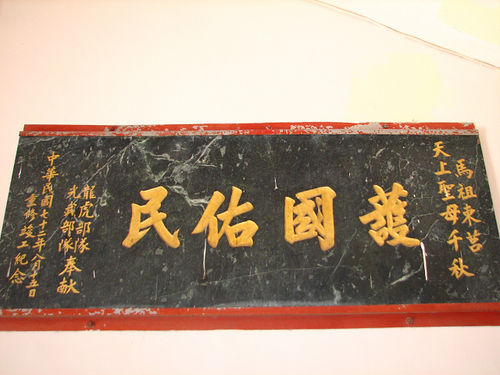 馬祖東莒
天上聖母千秋
護國佑民
龍虎部隊
光武部隊
奉獻
中華民國七十二年八月十五日
重修竣工紀念